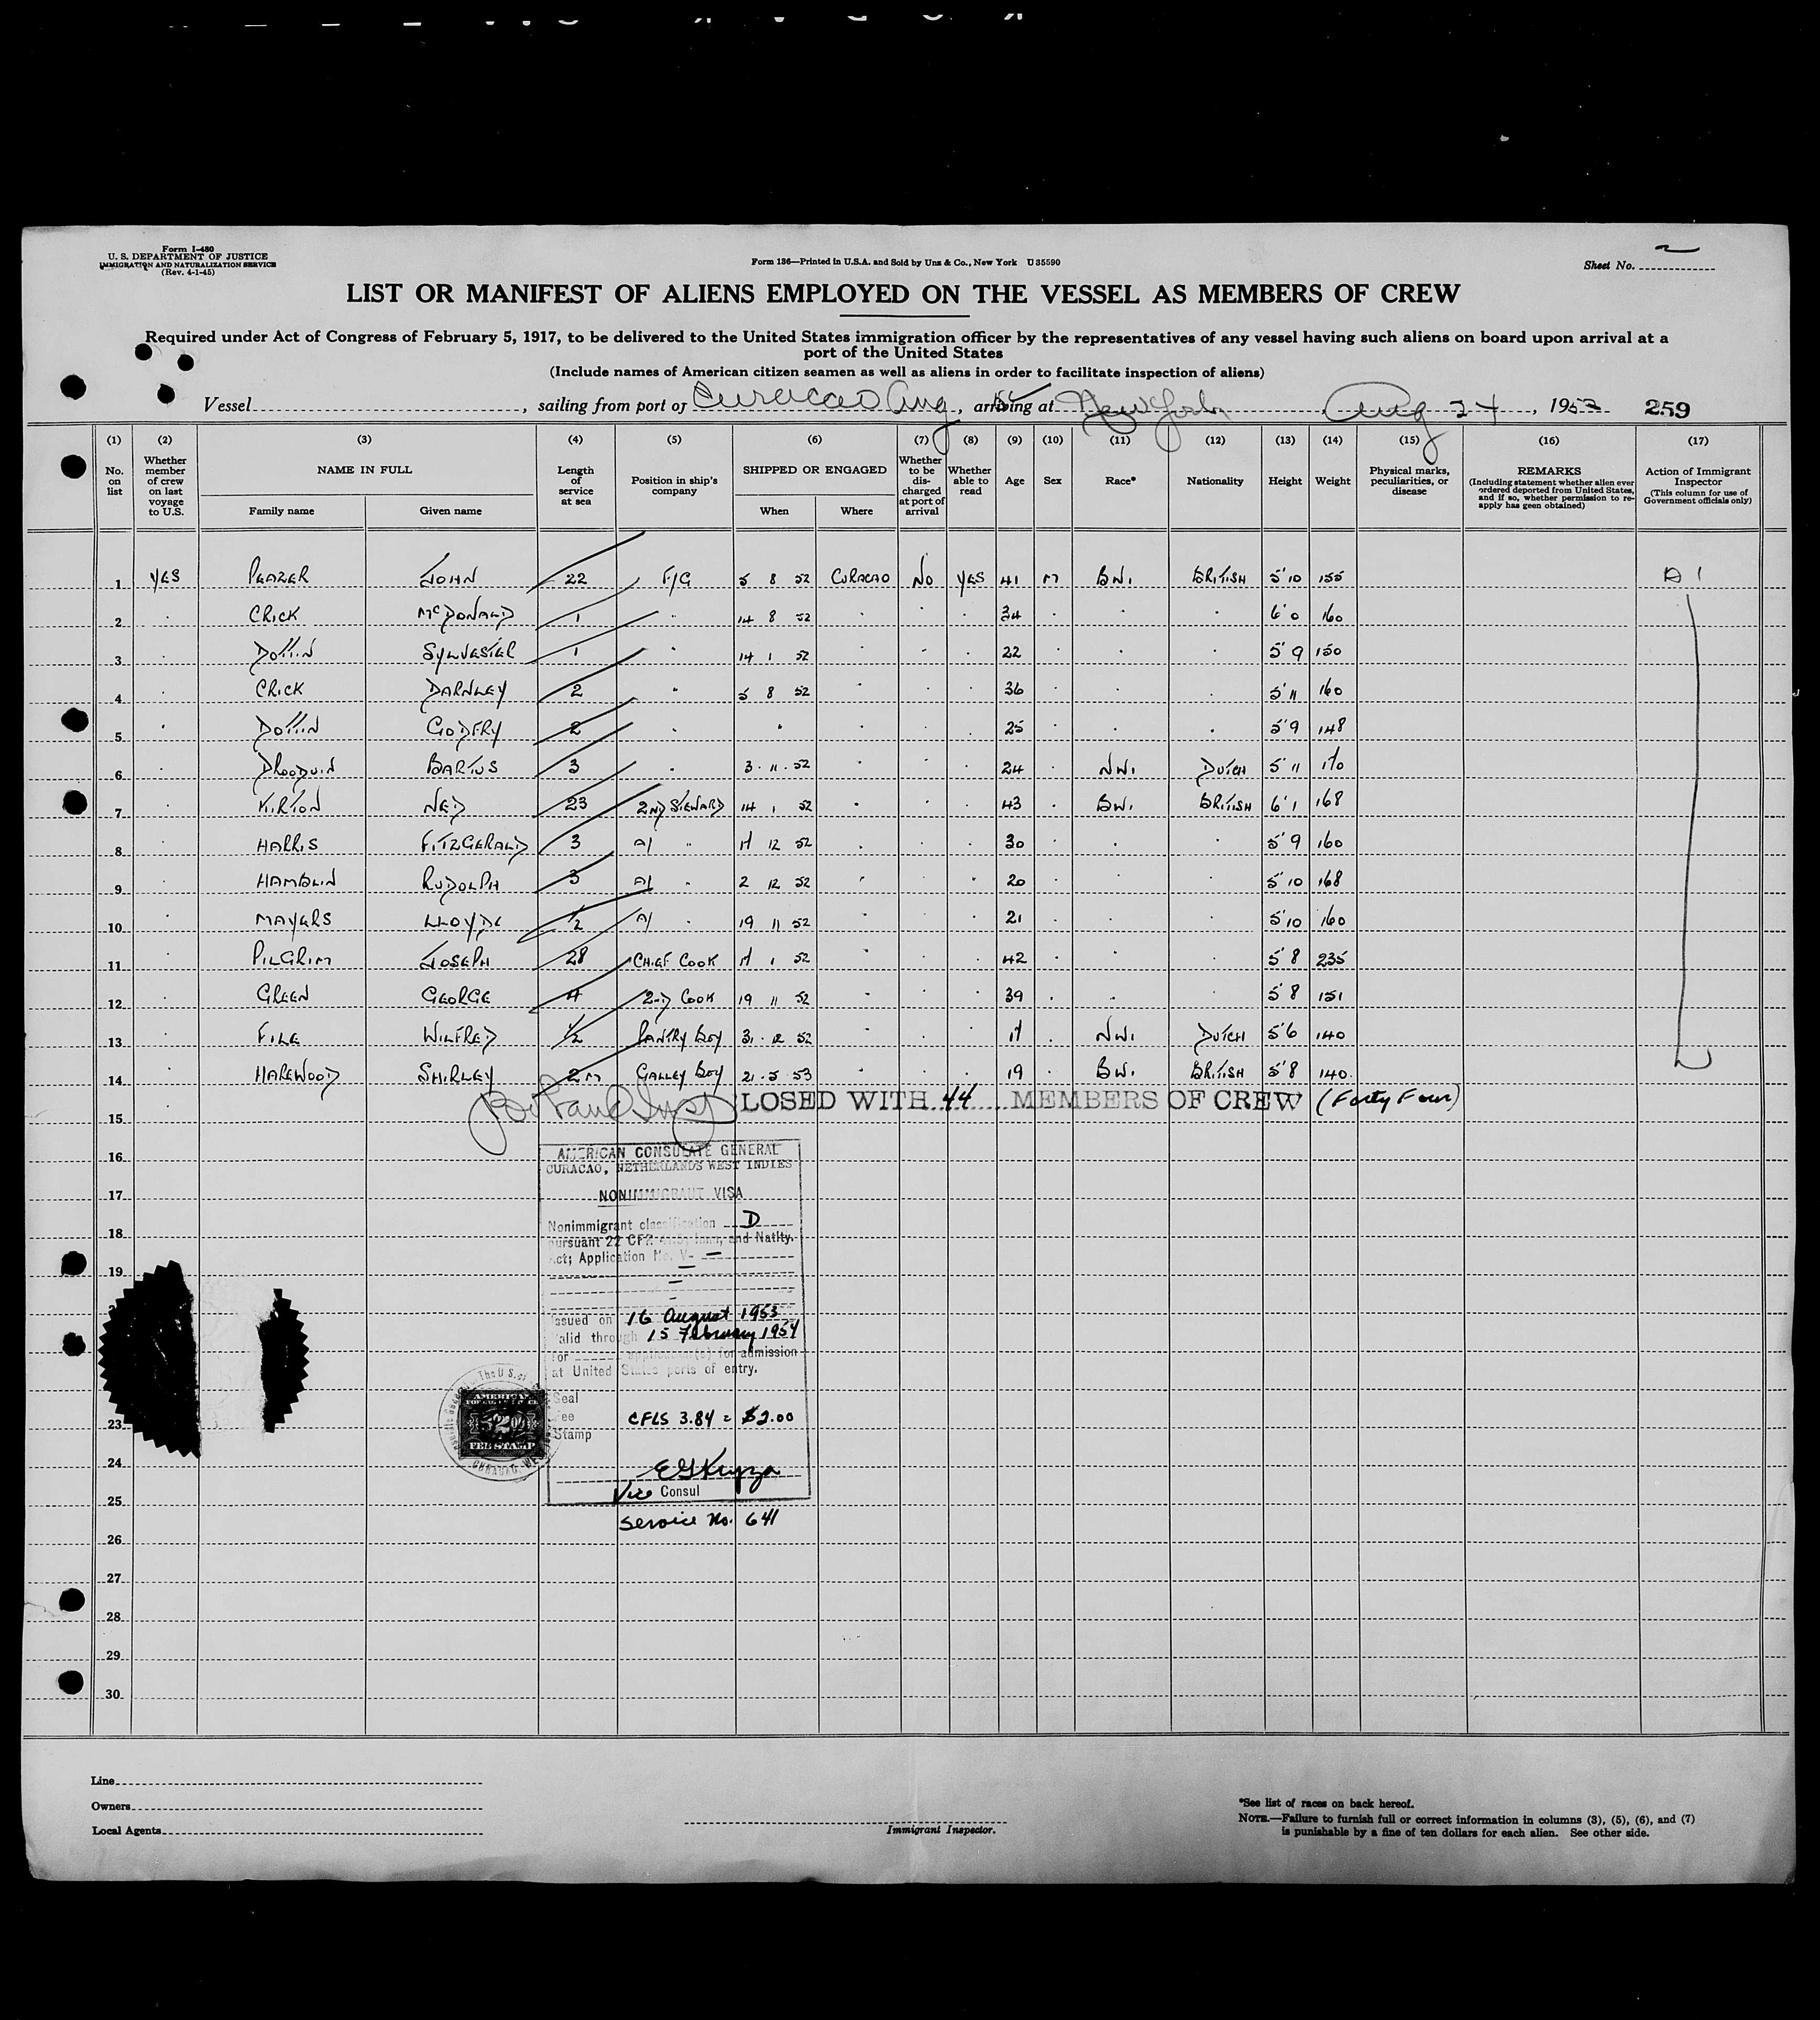 Form I-480
U. S. DEPARTMENT OF JUSTICE
IMMIGRATION AND NATURALIZATION SERVICE
(Rev. 4-1-45)
Form 136—Printed in U.S.A. and Sold by Unz & Co., New York U 35590
Sheet No. 2
LIST OR MANIFEST OF ALIENS EMPLOYED ON THE VESSEL AS MEMBERS OF CREW
Required under Act of Congress of February 5, 1917, to be delivered to the United States immigration officer by the representatives of any vessel having such aliens on board upon arrival at a
port of the United States
(Include names of American citizen seamen as well as aliens in order to facilitate inspection of aliens)
Vessel , sailing from port of Curacao Aug , arriving at New York , Aug 24 , 1953 259
(1) (2) (3) (4) (5) (6) (7) (8) (9) (10) (11) (12) (13) (14) (15) (16) (17)
No. on list Whether member of crew on last voyage to U.S. NAME IN FULL Length of service at sea Position in ship's company SHIPPED OR ENGAGED Whether to be discharged at port of arrival Whether able to read Age Sex Race* Nationality Height Weight Physical marks, peculiarities, or disease REMARKS (Including statement whether alien ever ordered deported from United States, and if so, whether permission to reapply has geen obtained) Action of Immigrant Inspector (This column for use of Government officials only)
Family name Given name When Where
1 YES JOHN 22 F/G 5 8 52 CURACAO NO YES 41 M BWI BRITISH 5'10 155
2 CRICK McDONALD 1 " 14 8 52 34 6'0 160
3 DOTTIN SYLVESTER 1 " 14 1 52 22 5'9 150
4 CRICK DARNLEY 2 " 5 8 52 36 5'11 160
5 DOTTIN GODFRY 2 " " 25 5'9 148
6 BARTUS 3 " 3 11 52 24 NWI DUTCH 5'11 170
7 KIRTON NED 23 2ND STEWARD 14 1 52 43 BWI BRITISH 6'1 168
8 HARRIS FITZGERALD 3 A/ " 17 12 52 30 5'9 160
9 HAMBLIN RUDOLPH 3 A/ " 2 12 52 20 5'10 168
10 MAYERS LLOYDE 1/2 A/ " 19 11 52 21 5'10 160
11 PILGRIM JOSEPH 28 CHIEF COOK 17 1 52 42 5'8 235
12 GREEN GEORGE 4 2ND COOK 19 11 52 39 5'8 151
13 FILE WILFRED 1/2 PANTRY BOY 31 12 52 17 NWI DUTCH 5'6 140
14 HAREWOOD SHIRLEY 2M GALLEY BOY 21 5 53 19 BWI BRITISH 5'8 140
CLOSED WITH 44 MEMBERS OF CREW (Forty Four)
15
16
17
18
19
23
24
25
26
27
28
29
30
AMERICAN CONSULATE GENERAL
CURACAO, NETHERLANDS WEST INDIES
NONIMMIGRANT VISA
Nonimmigrant classification D
pursuant 22 CFR Imm. and Natlty.
Act; Application No. V- —
Issued on 16 August 1953
Valid through 15 February 1954
for application(s) for admission
at United States ports of entry.
Seal
Fee CFLS 3.84 = $2.00
Stamp
Vice Consul
Service No. 641
AMERICAN
$2.00
FEE STAMP
Line
Owners
Local Agents
Immigrant Inspector.
*See list of races on back hereof.
NOTE.—Failure to furnish full or correct information in columns (3), (5), (6), and (7)
is punishable by a fine of ten dollars for each alien. See other side.